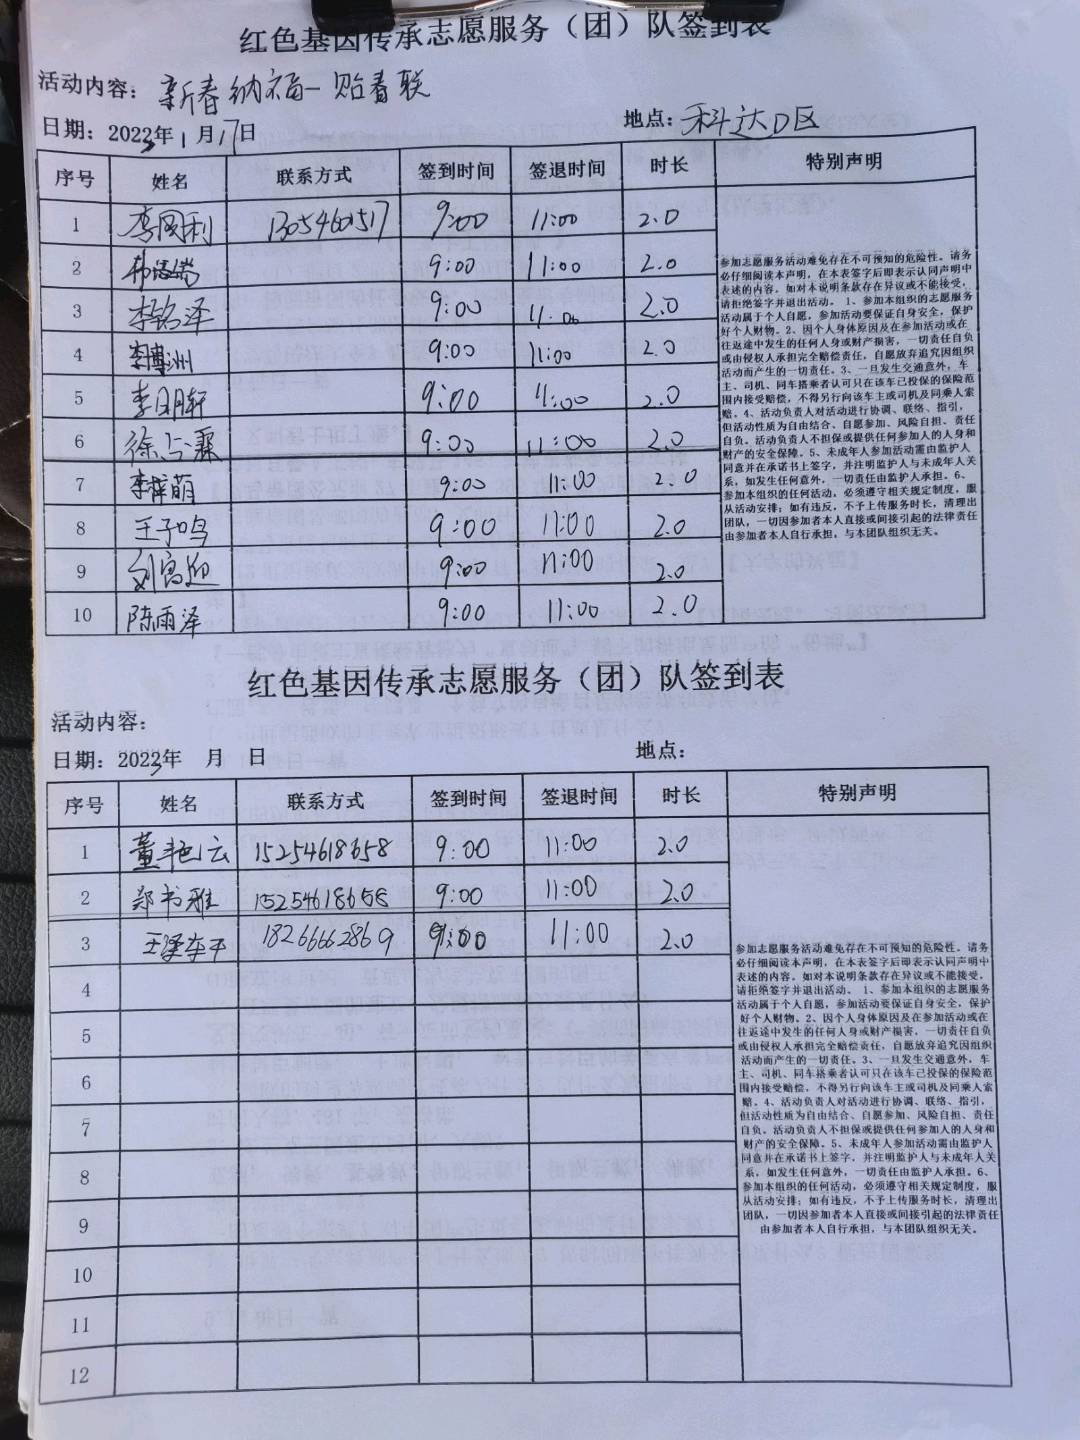 红色基因传承志愿服务（团）队签到表
活动内容：新春纳福－贴春联
日期：2023年1月17日 地点：科达D区
序号 姓名 联系方式 签到时间 签退时间 时长 特别声明
1 李同利 13054601517 9:00 11:00 2.0
2 9:00 11:00 2.0
3 李铭泽 9:00 11:00 2.0
4 李博洲 9:00 11:00 2.0
5 李明轩 9:00 11:00 2.0
6 9:00 11:00 2.0
7 李梓萌 9:00 11:00 2.0
8 王子鸣 9:00 11:00 2.0
9 9:00 11:00 2.0
10 陈雨泽 9:00 11:00 2.0
参加志愿服务活动难免存在不可预知的危险性。请务
必仔细阅读本声明，在本表签字后即表示认同声明中
表述的内容。如对本说明条款存在异议或不能接受，
请拒绝签字并退出活动。 1、参加本组织的志愿服务
活动属于个人自愿，参加活动要保证自身安全，保护
好个人财物。2、因个人身体原因及在参加活动或在
往返途中发生的任何人身或财产损害，一切责任自负
或由侵权人承担完全赔偿责任，自愿放弃追究因组织
活动而产生的一切责任。3、一旦发生交通意外，车
主、司机、同车搭乘者认可只在该车已投保的保险范
围内接受赔偿，不得另行向该车主或司机及同乘人索
赔。4、活动负责人对活动进行协调、联络、指引，
但活动性质为自由结合、自愿参加、风险自担、责任
自负。活动负责人不担保或提供任何参加人的人身和
财产的安全保障。5、未成年人参加活动需由监护人
同意并在承诺书上签字，并注明监护人与未成年人关
系，如发生任何意外，一切责任由监护人承担。6、
参加本组织的任何活动，必须遵守相关规定制度，服
从活动安排；如有违反，不予上传服务时长，清理出
团队，一切因参加者本人直接或间接引起的法律责任
由参加者本人自行承担，与本团队组织无关。
红色基因传承志愿服务（团）队签到表
活动内容：
日期：2023年 月 日 地点：
序号 姓名 联系方式 签到时间 签退时间 时长 特别声明
1 董艳云 15254618658 9:00 11:00 2.0
2 郑书雅 15254618658 9:00 11:00 2.0
3 18266662869 9:00 11:00 2.0
4
5
6
7
8
9
10
11
12
参加志愿服务活动难免存在不可预知的危险性。请务
必仔细阅读本声明，在本表签字后即表示认同声明中
表述的内容。如对本说明条款存在异议或不能接受，
请拒绝签字并退出活动。 1、参加本组织的志愿服务
活动属于个人自愿，参加活动要保证自身安全，保护
好个人财物。2、因个人身体原因及在参加活动或在
往返途中发生的任何人身或财产损害，一切责任自负
或由侵权人承担完全赔偿责任，自愿放弃追究因组织
活动而产生的一切责任。3、一旦发生交通意外，车
主、司机、同车搭乘者认可只在该车已投保的保险范
围内接受赔偿，不得另行向该车主或司机及同乘人索
赔。4、活动负责人对活动进行协调、联络、指引，
但活动性质为自由结合、自愿参加、风险自担、责任
自负。活动负责人不担保或提供任何参加人的人身和
财产的安全保障。5、未成年人参加活动需由监护人
同意并在承诺书上签字，并注明监护人与未成年人关
系，如发生任何意外，一切责任由监护人承担。6、
参加本组织的任何活动，必须遵守相关规定制度，服
从活动安排；如有违反，不予上传服务时长，清理出
团队，一切因参加者本人直接或间接引起的法律责任
由参加者本人自行承担，与本团队组织无关。